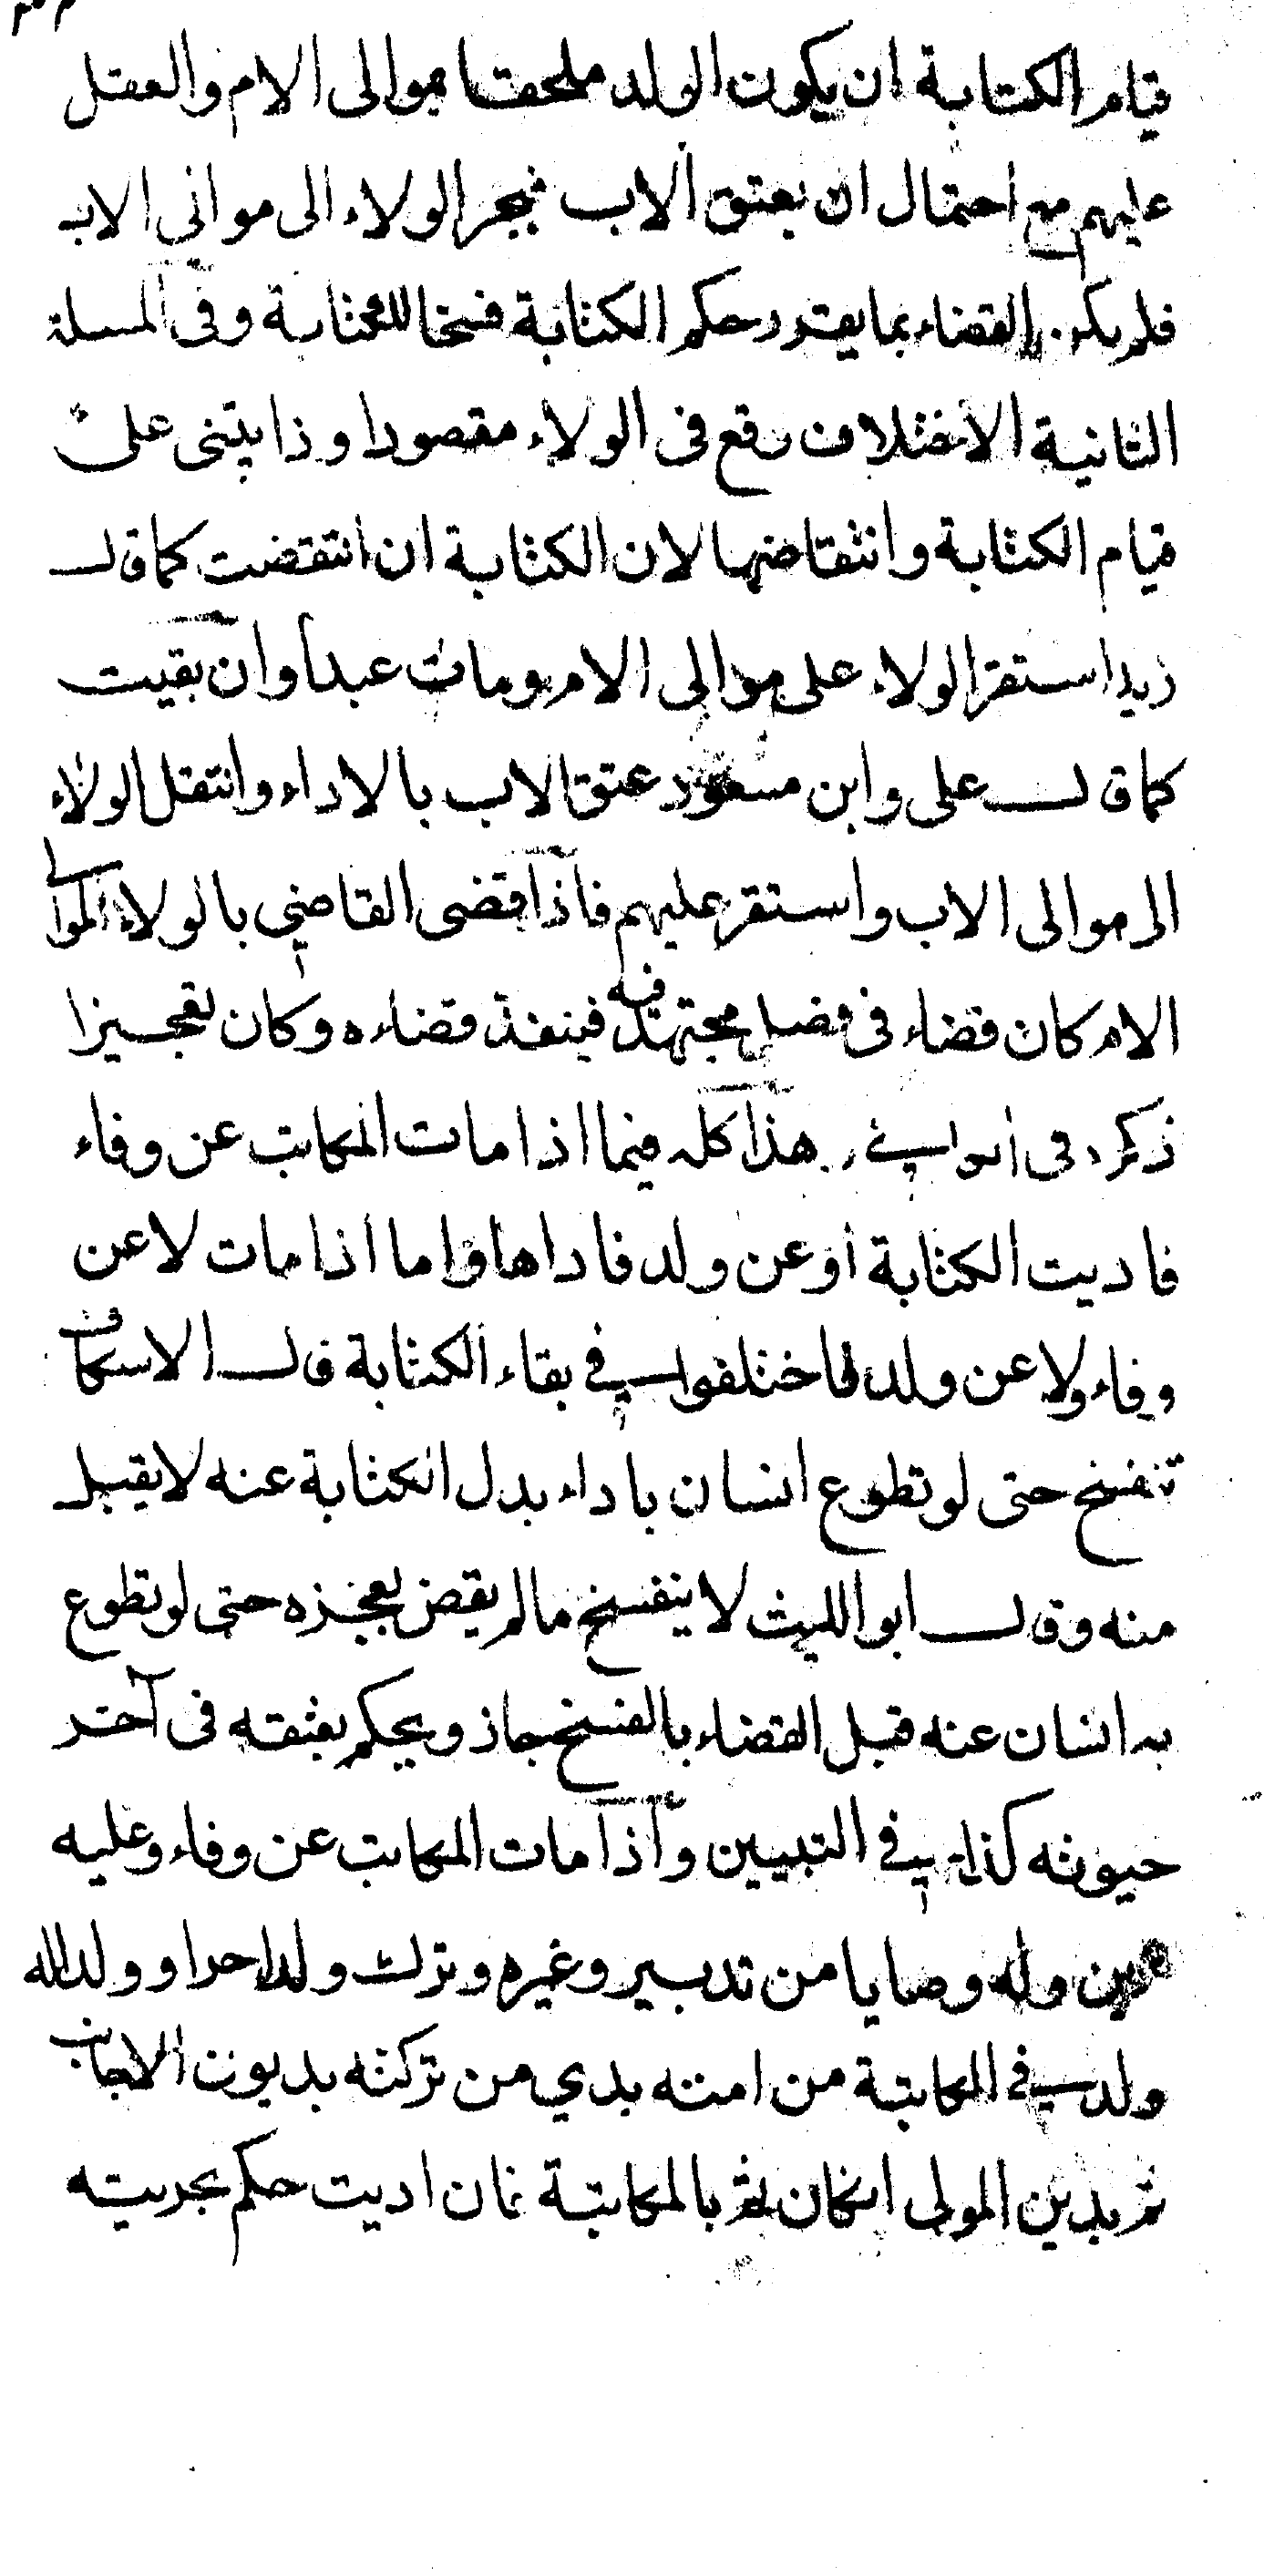 قيام الكتابة ان يكون الولد ملحقا بموالى الام والعقل
عليهم مع احتمال ان يعتق الاب فيجر الولاء الى موالى الاب
فلم يكن القضاء بما يقرر حكم الكتابة فسخا للكتابة وفى المسلة
الثانية الاختلاف وقع فى الولاء مقصودا وذا يبتنى على
قيام الكتابة وانتقاضها لان الكتابة ان انتقضت كما قال
زيد استقر الولاء على موالى الام ومات عبدا وان بقيت
كما قال على وابن مسعود عتق الاب بالاداء وانتقل الولاء
الى موالى الاب واستقر عليهم فاذا قضى القاضى بالولاء لموالى
الام كان قضاء فى فصل مجتهد فيه فينفذ قضاءه وكان تعجيزا
ذكره فى هذا كله فيما اذا مات المكاتب عن وفاء
فاديت الكتابة او عن ولد فاداها واما اذا مات لا عن
وفاء ولا عن ولد فاختلفوا فى بقاء الكتابة قال الاسكاف
تنفسخ حتى لو تطوع انسان باداء بدل الكتابة عنه لا يقبل
منه وقال ابو الليث لا ينفسخ ما لم يقض بعجزه حتى لو تطوع
به انسان عنه قبل القضاء بالفسخ جاز ويحكم بعتقه فى آخر
حيوته كذا فى التبيين واذا مات المكاتب عن وفاء وعليه
دين وله وصايا من تدبير وغيره وترك ولدا حرا وولدا له
ولد فى المكاتبة من امته بدي من تركته بديون الاجانب
ثم بدين المولى ان كان ثم بالمكاتبة فان اديت حكم بحريته